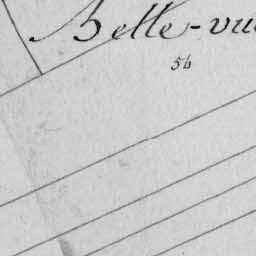 Belle-vue
54